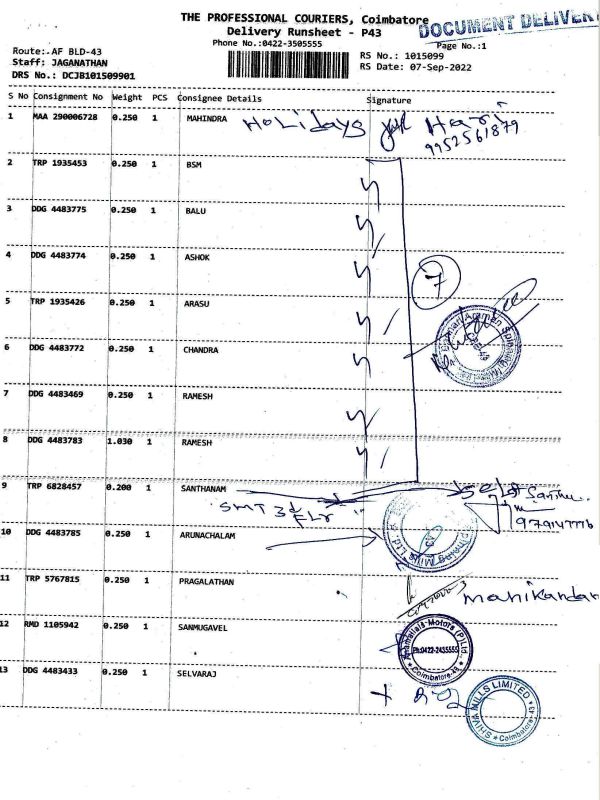 THE PROFESSIONAL COURIERS, Coimbatore
DOCUMENT DELIVERY
Delivery Runsheet - P43
Phone No.:0422-3505555
Page No.:1
Route: AF BLD-43
Staff: JAGANATHAN
DRS No.: DCJB101509901
RS No.: 1015099
RS Date: 07-Sep-2022
S No Consignment No Weight PCS Consignee Details Signature
1 MAA 290006728 0.250 1 MAHINDRA HOLidays Hari
9952561879
2 TRP 1935453 0.250 1 BSM
3 DDG 4483775 0.250 1 BALU
4 DDG 4483774 0.250 1 ASHOK
7
5 TRP 1935426 0.250 1 ARASU
6 DDG 4483772 0.250 1 CHANDRA
7 DDG 4483469 0.250 1 RAMESH
8 DDG 4483783 1.030 1 RAMESH
9 TRP 6828457 0.200 1 SANTHANAM
SMT 3rd FLr
10 DDG 4483785 0.250 1 ARUNACHALAM
11 TRP 5767815 0.250 1 PRAGALATHAN
manikandan
12 RMD 1105942 0.250 1 SANMUGAVEL
Anamallais Motors (P) Ltd
Ph:0422-2455555
Coimbatore-43
13 DDG 4483433 0.250 1 SELVARAJ
SHIVA MILLS LIMITED
Coimbatore-43